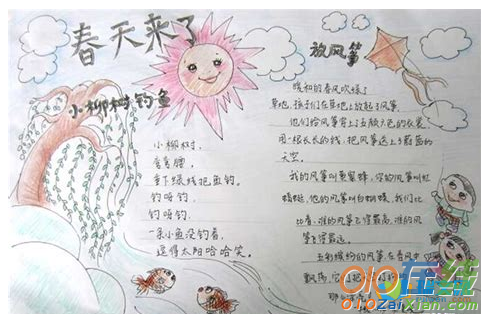 春天来了
小柳树钓鱼
小柳树,
弯弯腰,
垂下绿线把鱼钓。
钓呀钓,
钓呀钓,
一条小鱼没钓着,
逗得太阳哈哈笑。
放风筝
暖和的春风吹绿了
草地,孩子们在草地上放起了风筝。
他们给风筝穿上了五颜六色的衣裳,
用一根长长的线,把风筝送上了蔚蓝的
天空。
我的风筝叫,你的风筝叫红
蜻蜓,他的风筝叫白蝴蝶,我们比
比看,谁的风筝飞得最高,谁的风
筝飞得最远。
五彩缤纷的风筝,在春风中
飘荡,它
那么
010在线
010zaiXian.com